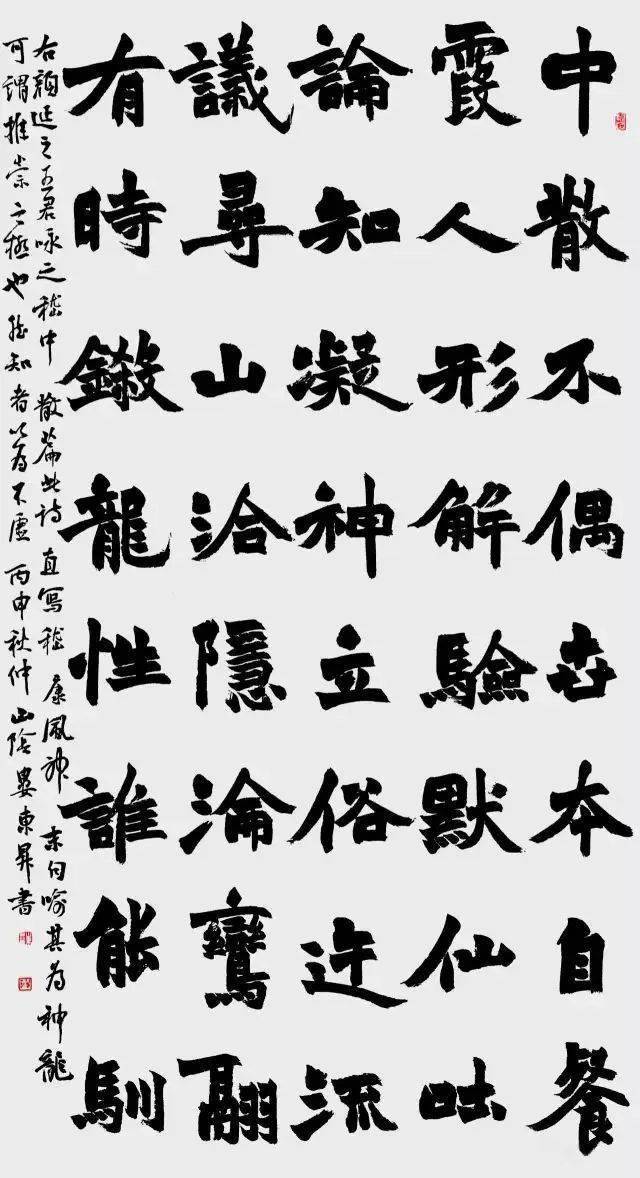 中散不偶世本自餐
霞人形解驗默仙吐
論知凝神立俗迕流
議尋山洽隱淪鸞翮
有時鎩龍性誰能馴
右顏延之五君咏之嵇中散篇此詩直寫嵇康風神末句喻其為神龍
可謂推崇之極也知者以為不虛丙申秋仲山陰婁東昇書